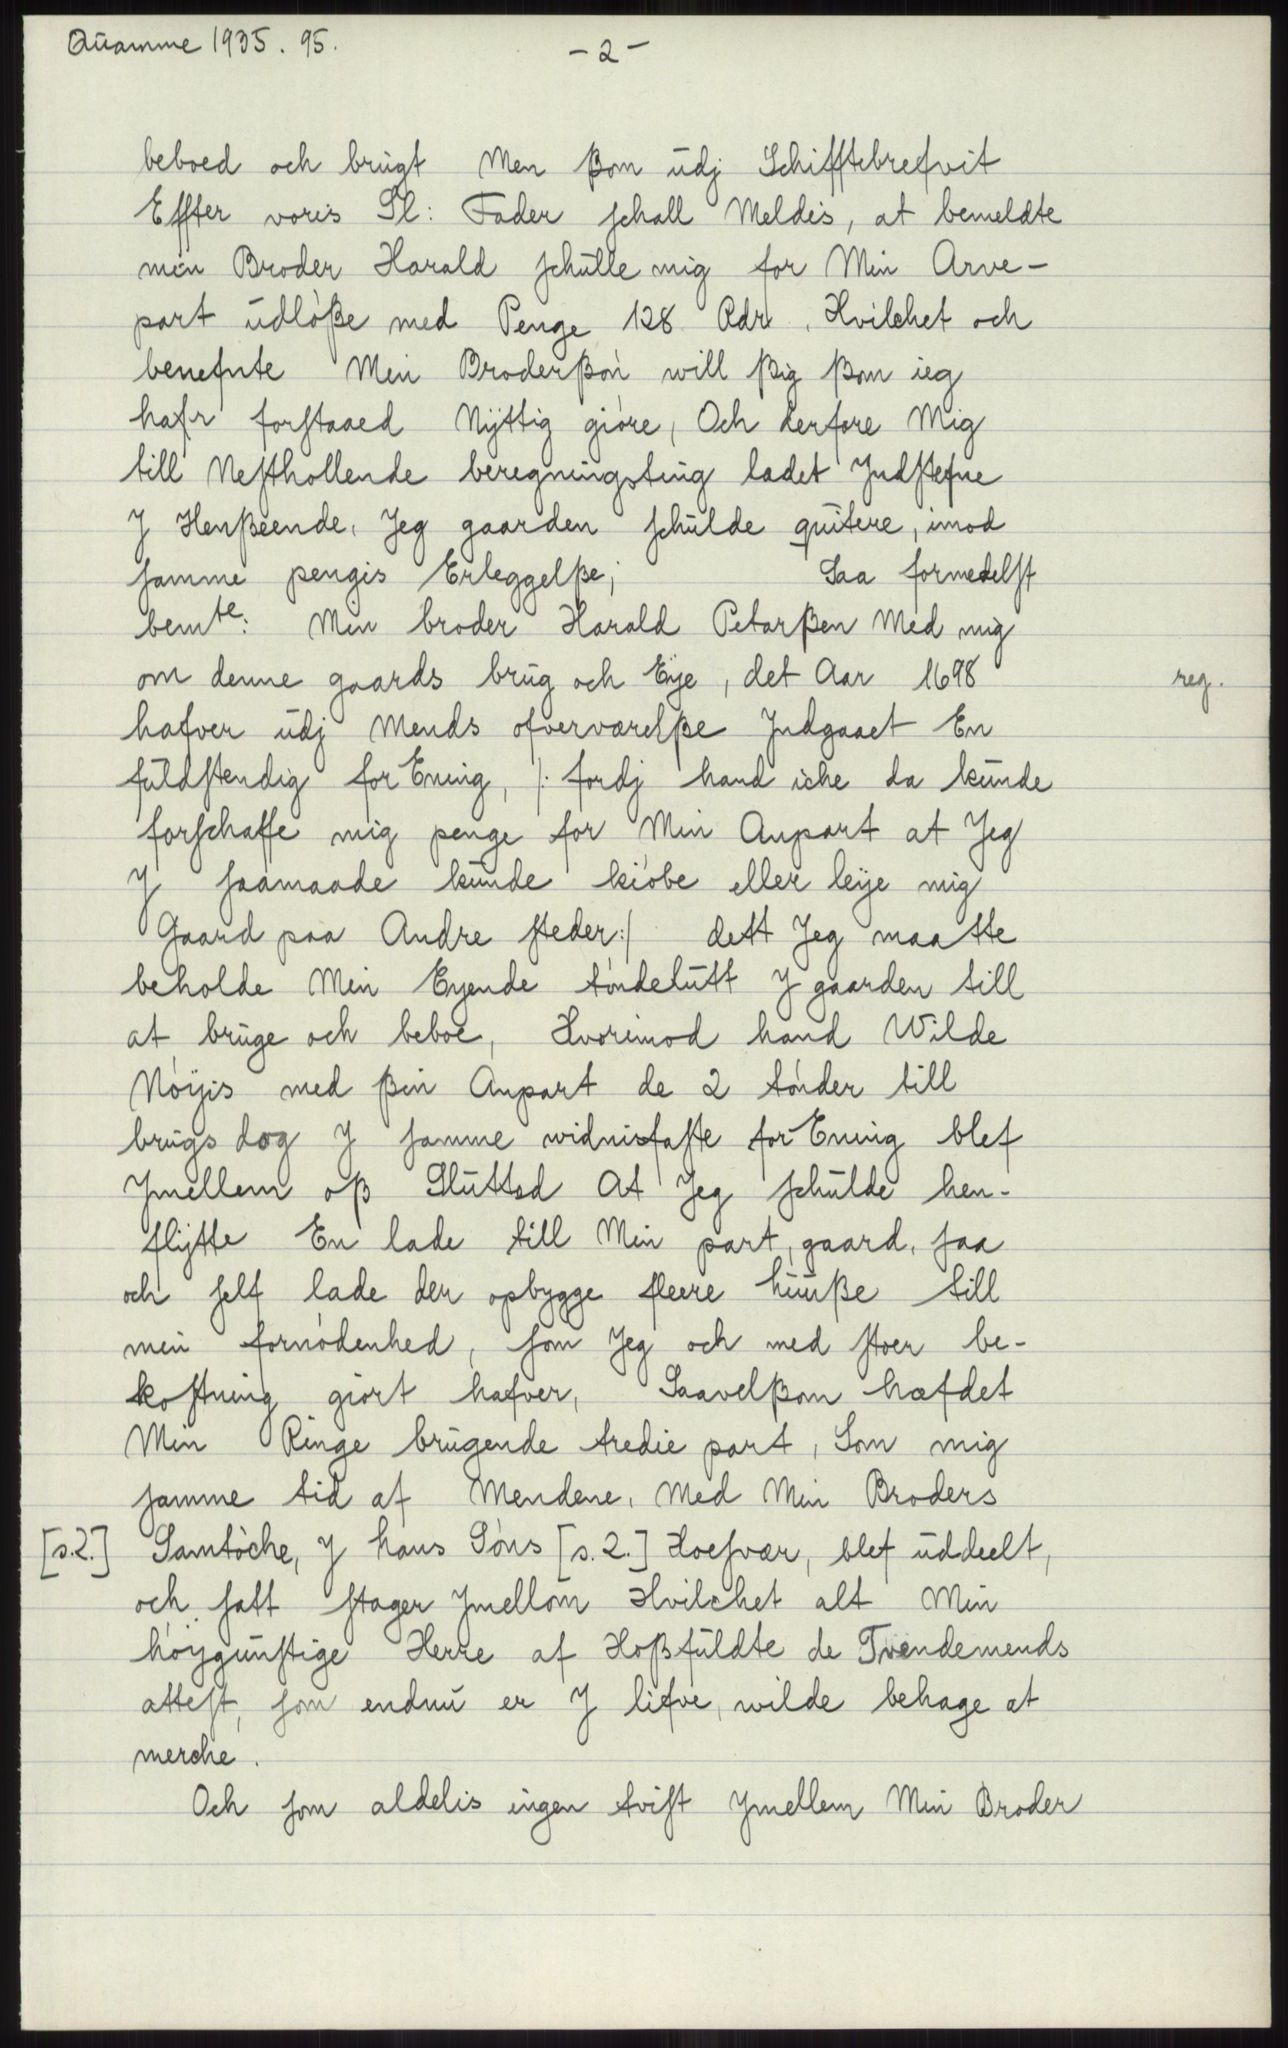 Quamme 1935. 95.
- 2 -
beboed och brugt Men ßom udj Schifftebrefvit
Effter voris Sl: Fader schall Meldis, at bemeldte
min Broder Harald schulle mig for Min Arve-
part udløße med Penge 128 Rdr. Hvilchet och
benefnte Min Broderßón will ßig ßom ieg
hafr forstaaed Nÿttig gióre, Och derfore Mig
till Nesthollende beregningsting ladet Jndstefne
J Henßeende, Jeg gaarden schulde quitere, imod
samme pengis Erleggelße; Saa formedelst
bemte: Min broder Harald Petarßen Med mig
om denne gaards brug och Eÿe, det Aar 1698
reg.
hafver udj Mends ofverværelße Jndgaaet En
fuldstendig for Ening, /: fordj hand iche da kunde
forschaffe mig penge for Min Anpart at Jeg
J saamaade kunde kióbe eller leÿe mig
Gaard paa Andre steder:/ dett Jeg maatte
beholde Min Eyende tóndelutt J gaarden till
at bruge och beboe, Hvorimod hand Wilde
Nóÿis med ßin Anpart de 2 tónder till
brugs dog J samme widnisfaste for Ening blef
Jmellem oß Slutted At Jeg schulde hen-
flÿtte En lade till Min part, gaard, saa
och self lade der opbygge fleere huuße till
min fornódenhed, som Jeg och med stoer be-
kostning giórt hafver, Saavelßom hæfdet
Min Ringe brugende tredie part, Som mig
samme tid af Mendene, Med Min Broders
[s.2.] Samtóche, J hans Sóns [s.2.] Hoesvær, blef uddeelt,
och satt stager Jmellom Hvilchet alt Min
hóÿgunstige Herre af Hoßfuldte de Tvendemends
attest, som endnu er J lifve, wilde behage at
merche.
Och som aldelis ingen tvist Jmellem Min Broder